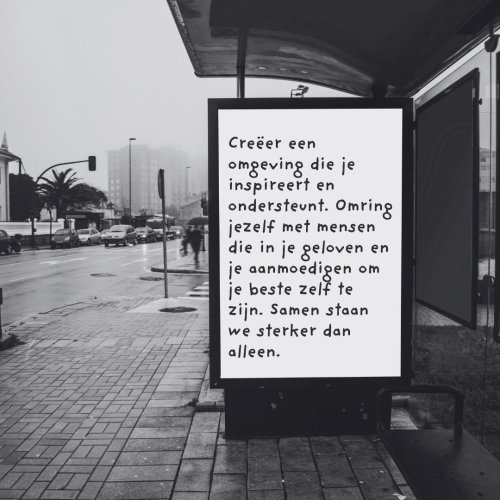 Creëer een
omgeving die je
inspireert en
ondersteunt. Omring
jezelf met mensen
die in je geloven en
je aanmoedigen om
je beste zelf te
zijn. Samen staan
we sterker dan
alleen.